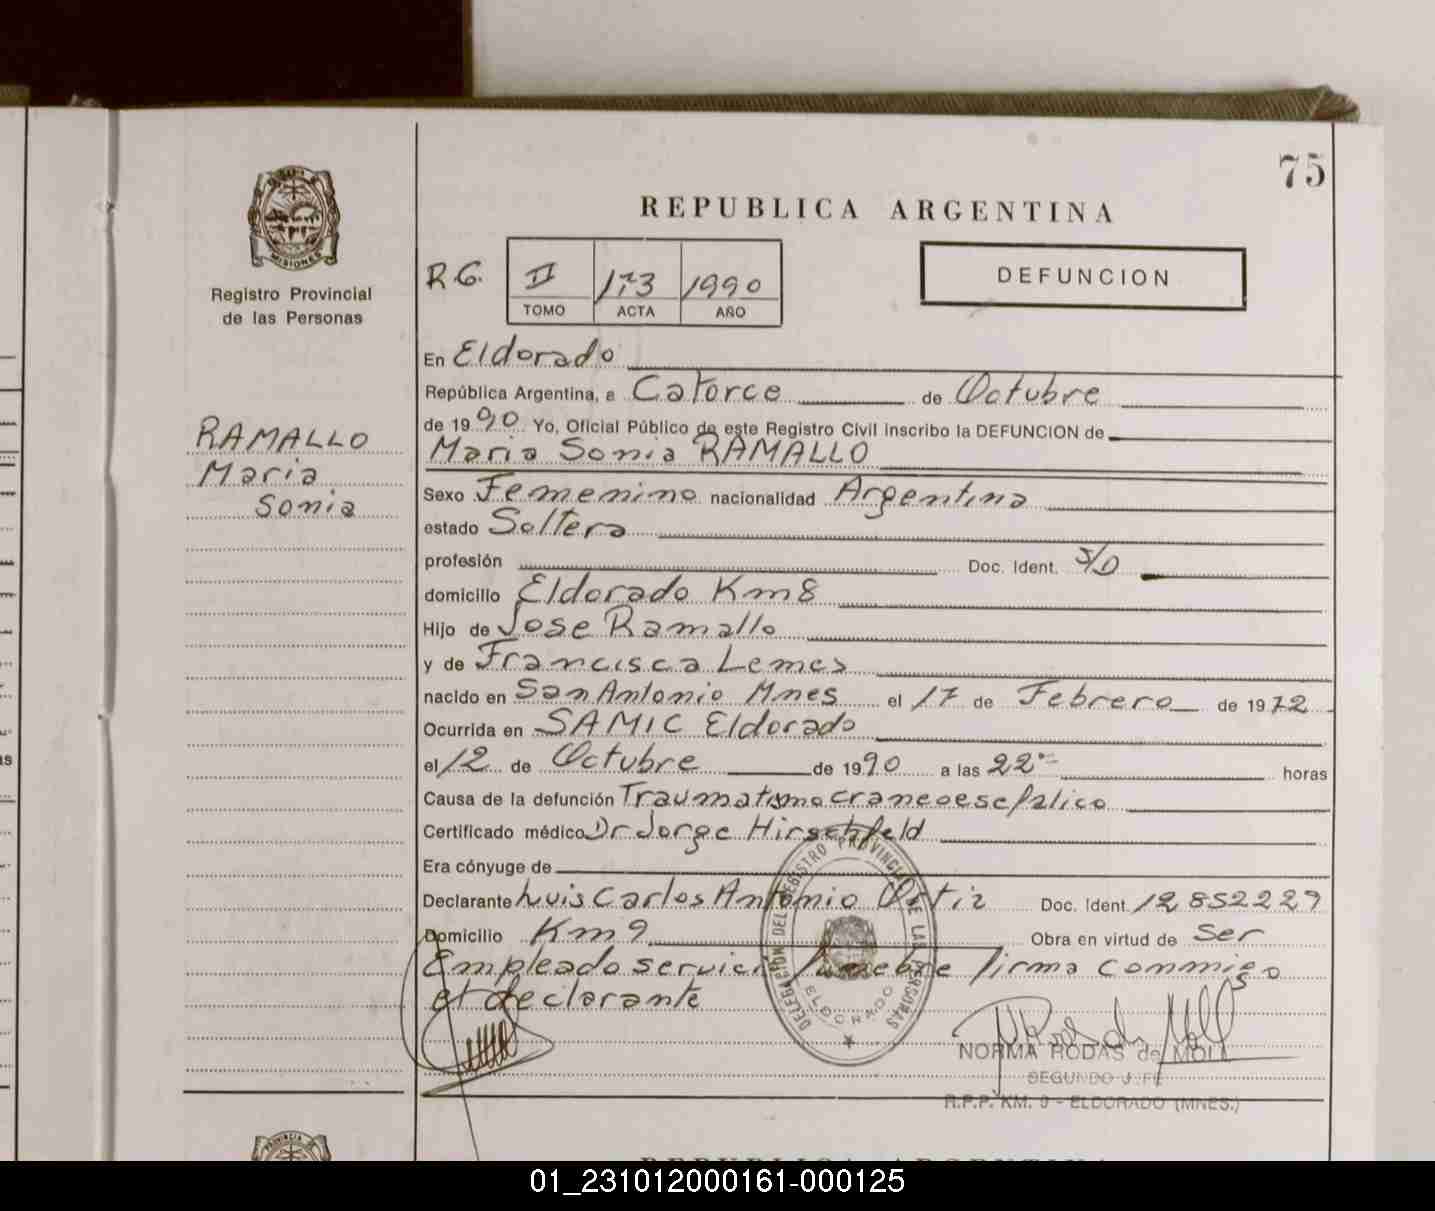 75
REPUBLICA ARGENTINA
PROVINCIA DE
MISIONES
Registro Provincial
de las Personas
R.G.
II 173 1990
TOMO ACTA AÑO
DEFUNCION
RAMALLO
Maria
Sonia
En Eldorado
República Argentina, a Catorce de Octubre
de 1990 Yo, Oficial Público de este Registro Civil inscribo la DEFUNCION de
Maria Sonia RAMALLO
Sexo Femenino nacionalidad Argentina
estado Soltera
profesión Doc. Ident. S/D
domicilio Eldorado Km8
Hijo de Jose Ramallo
y de Francisca Lemes
nacido en San Antonio Mnes el 17 de Febrero de 1972
Ocurrida en SAMIC Eldorado
el 12 de Octubre de 1990 a las 22 horas
Causa de la defunción Traumatismo craneoesefalico
Certificado médico Dr Jorge Hirschfeld
Era cónyuge de
Declarante Luis Carlos Antonio Ortiz Doc. Ident. 12852229
Domicilio Km9 Obra en virtud de Ser
Empleado servicio funebre firma conmigo
el declarante
DELEGACIÓN DEL REGISTRO PROVINCIAL DE LAS PERSONAS
ELDORADO
NORMA RODAS de MOLL
SEGUNDO JEFE
R.P.P. KM. 9 - ELDORADO (MNES.)
PROVINCIA DE
REPUBLICA ARGENTINA
01_231012000161-000125